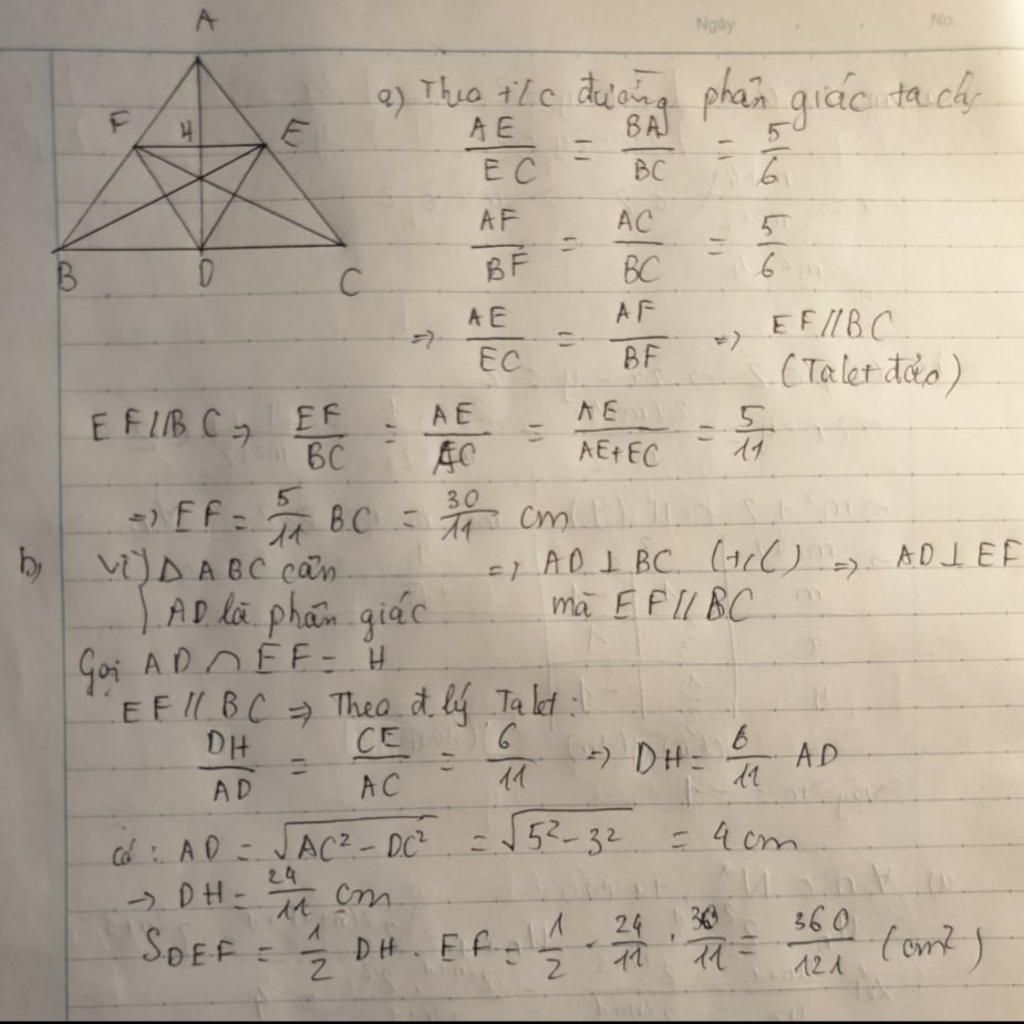 Ngày No.
A
F H E
B D C
a) Theo t/c đường phân giác ta có
AE/EC = BA/BC = 5/6
AF/BF = AC/BC = 5/6
=> AE/EC = AF/BF => EF//BC
(Talet đảo)
EF//BC => EF/BC = AE/AC = AE/AE+EC = 5/11
=> EF = 5/11 BC = 30/11 cm
b) Vì } Δ ABC cân => AD ⊥ BC (t/c) => AD ⊥ EF
AD là phân giác mà EF//BC
Gọi AD ∩ EF = H
EF // BC => Theo đ. lý Talet:
DH/AD = CE/AC = 6/11 => DH = 6/11 AD
có : AD = √AC² - DC² = √5² - 3² = 4 cm
-> DH = 24/11 cm
SDEF = 1/2 DH . EF = 1/2 . 24/11 . 30/11 = 360/121 (cm²)